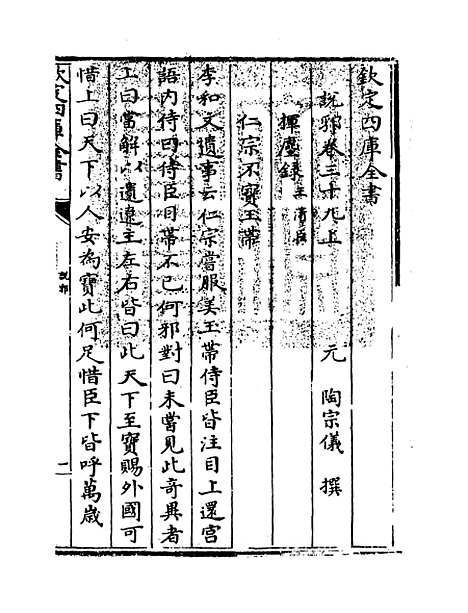 欽定四庫全書
說郛卷三十九上
元 陶宗儀 撰
揮麈錄 王清臣
仁宗不寶玉帶
李和文遺事云仁宗嘗服美玉帶侍臣皆注目上還宮
語内侍曰侍臣目帶不已何邪對曰未嘗見此奇異者
上曰當解以遺遼主左右皆曰此天下至寶賜外國可
惜上曰天下以人安為寶此何足惜臣下皆呼萬歲
欽定四庫全書
說郛
一